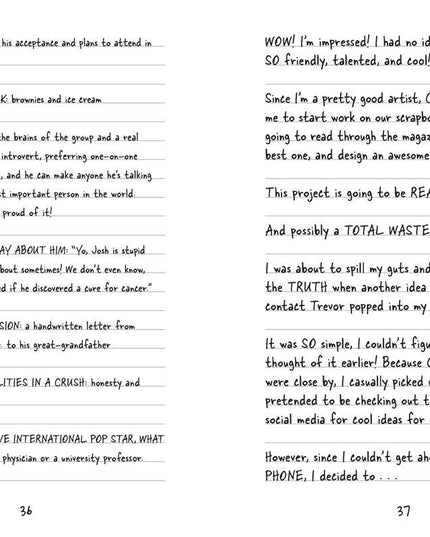 his acceptance and plans to attend in
K: brownies and ice cream
the brains of the group and a real
introvert, preferring one-on-one
, and he can make anyone he's talking
st important person in the world.
proud of it!
AY ABOUT HIM: "Yo, Josh is stupid
about sometimes! We don't even know,
ed if he discovered a cure for cancer."
SION: a handwritten letter from
to his great-grandfather
LITIES IN A CRUSH: honesty and
VE INTERNATIONAL POP STAR, WHAT
physician or a university professor.
36
WOW! I'm impressed! I had no id
SO friendly, talented, and cool!
Since I'm a pretty good artist, C
me to start work on our scrapbo
going to read through the magaz
best one, and design an awesome
This project is going to be REA
And possibly a TOTAL WASTE
I was about to spill my guts and
the TRUTH when another idea
contact Trevor popped into my
It was SO simple, I couldn't figu
thought of it earlier! Because C
were close by, I casually picked u
pretended to be checking out t
social media for cool ideas for
However, since I couldn't get aho
PHONE, I decided to . . .
37